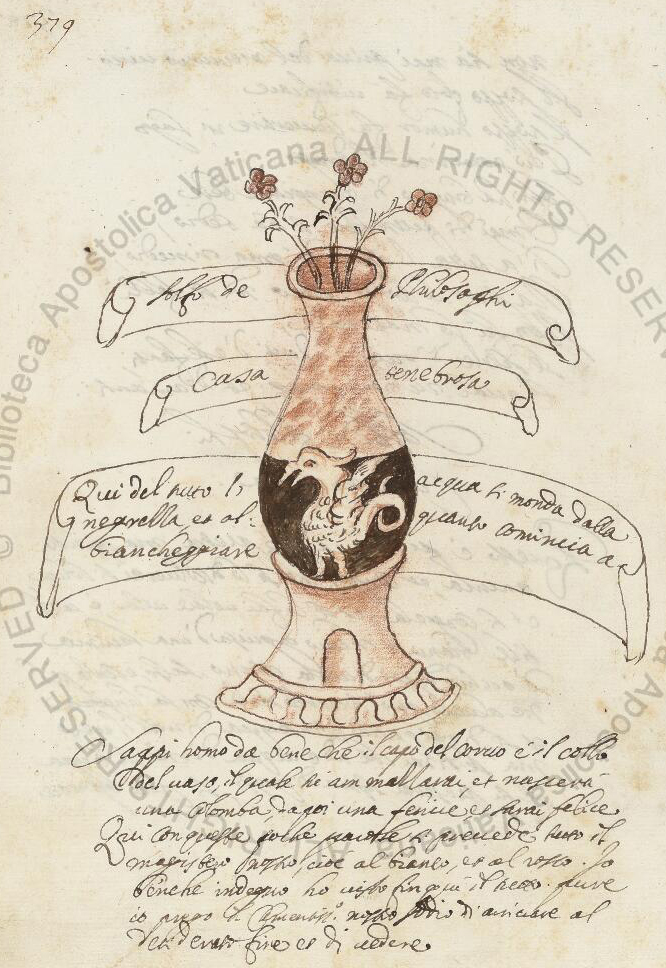 379
Biblioteca Apostolica Vaticana ALL RIGHTS RESERVED ©
solfo de Philosophi
Casa tenebrosa
Qui del tutto l' acqua si monda dalla
negrella et al quanto comincia a
biancheggiare
Sappi homo da bene che il capo del corvo è il collo
del vaso, il quale et nascerà
una Colomba, da poi una fenice e sarai felice
Qui con queste poche si tutto il
magistero cioè al bianco, et al rosso. Io
benche indegno ho visto fin qui il tutto. pure
io prego il nostro di arivare al
desiderato fine et di vedere